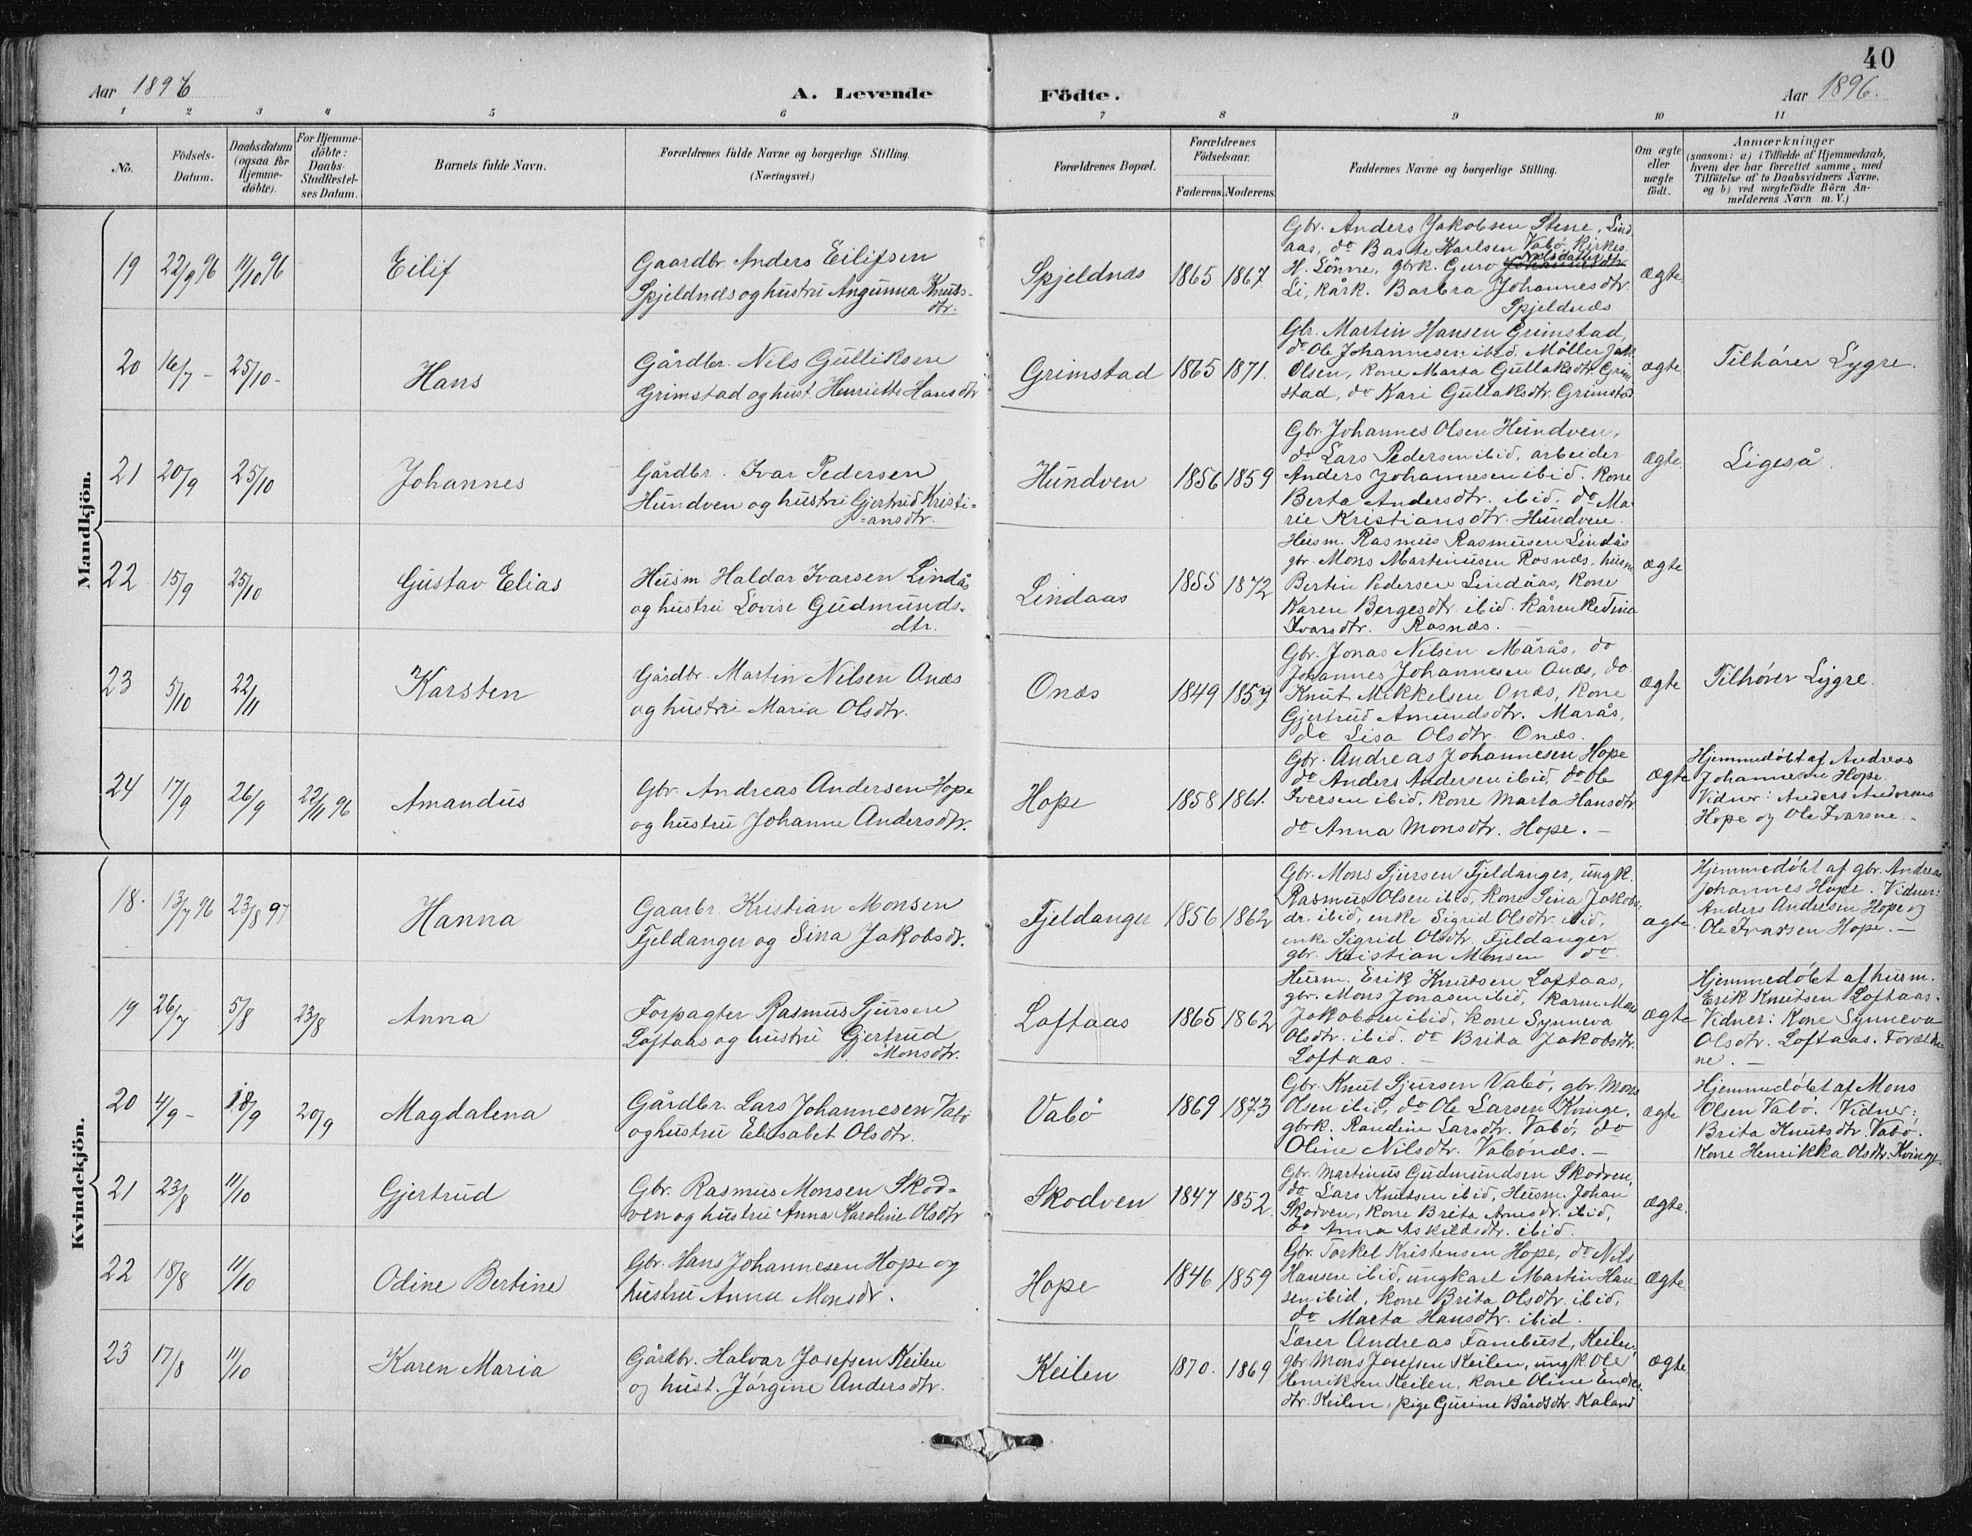 40
Aar 1896
A. Levende
Födte.
Aar 1896.
1 2 3 4 5 6 7 8 9 10 11
No.
Födsels-
Datum.
Daabsdatum
(ogsaa for
Hjemme-
döbte).
For Hjemme-
döbte:
Daabs-
Stadfæstel-
ses Datum.
Barnets fulde Navn.
Forældrenes fulde Navne og borgerlige Stilling.
(Næringsvei.)
Forældrenes Bopæl.
Forældrenes
Födselsaar.
Faderens. Moderens.
Faddernes Navne og borgerlige Stilling.
Om ægte
eller
uægte
födt.
Anmærkninger
(saasom: a) i Tilfælde af Hjemmedaab,
hvem der har forrettet samme, med
Tilföielse af to Daabsvidners Navne,
og b) ved uægtefödte Börn An-
melderens Navn m. V.)
Mandkjön.
19 22/9 96 11/10 96
Eilif
Gaardbr. Anders Eilifsen
Spjeldnæs og hustru Angunna Knuts-
dtr.
Spjeldnæs
1865 1867
Gbr. Anders Jakobsen Stene, Lind
aas, do Baste Karlsen Vabø, Kirkes.
H. Sønne, gbrk. Guro Nilsdatter
Li, kårk. Barbra Johannesdtr.
Spjeldnæs
ægte.
20 16/7 - 25/10 -
Hans
Gårdbr. Nils Gulliksen
Grimstad og hust. Henriette Hansdtr
Grimstad
1865 1871.
Gbr. Martin Hansen Grimstad
do Ole Johannesen ibid, Møller Jak.
Olsen, kone Marta Gullaksdtr. Grim
stad, do Kari Gullaksdtr. Grimstad
ægte.
Tilhører Lygre.
21 20/9 25/10
Johannes
Gårdbr. Ivar Pedersen
Hundven og hustru Gjertrud Kristi-
ansdtr.
Hundven
1856 1859
Gbr Johannes Olsen Hundven,
do Lars Pedersen ibid, arbeider
Anders Johannesen ibid. Kone
Berta Andersdtr. ibid. do Ma-
rie Kristiansdtr. Hundven.
ægte.
Ligeså.
22 15/9 25/10
Gustav Elias
Husm Haldor Ivarsen Lindås
og hustru Lovise Gudmunds-
dtr.
Lindaas
1855 1872
Husm. Rasmus Rasmusen Lindås
gbr. Mons Martinusen Rosnæs, husm
Bertin Pedersen Lindåas, kone
Karen Bergesdtr. ibid.
Ivarsdtr. Rosnæs. -
ægte
23 5/10 22/11
Karsten
Gårdbr. Martin Nilsen Onæs
og hustru Maria Olsdtr.
Onæs
1849 1857
Gbr. Jonas Nilsen Mårås, do
Johannes Johannesen Onæs, do
Knut Mikkelsen Onæs, kone
Gjertrud Amundsdtr. Marås,
do Lisa Olsdtr. Onæs.
ægte
Tilhører Lygre.
24 17/9 26/9 22/11 96
Amandus
Gbr. Andreas Andersen Hope
og hustru Johanne Andersdtr.
Hope
1858 1861.
Gbr. Andreas Johannesen Hope
do Anders Andersen ibid. do Ole
Iversen ibid, kone Marta Hansdtr
do Anna Monsdtr. Hope. -
ægte
Hjemmedøbt af Andreas
Johannesen Hope.
Vidner: Anders Andersen
Hope og Ole Ivarsen.
Kvindekjön.
18. 13/7 96 23/8 97
Hanna
Gaarbr. Kristian Monsen
Fjeldanger og Sina Jakobsdtr.
Fjeldanger
1856 1862
Gbr. Mons Sjursen Fjeldanger, ungk.
Rasmus Olsen ibid, kone Sina Jakobs-
dr. ibid, enke Sigrid Olsdtr. ibid,
enke Sigrid Olsdtr. Fjeldanger
gbr. Kristian Monsen do
ægte.
Hjemmedøbt af gbr. Andreas
Johannes Hope. Vidner:
Anders Andersen Hope og
Ole Ivarsen Hope. -
19 26/7 5/8 23/8
Anna
Forpagter Rasmus Sjursen
Loftaas og hustru Gjertrud
Monsdtr.
Loftaas
1865 1862
Husm. Erik Knutsen Loftaas,
gbr. Mons Jonasen ibid,
Jakobsen ibid, kone Synneva
Olsdtr. ibid. do Brita Jakobsdtr.
Loftaas. -
ægte
Hjemmedøbt af husm.
Erik Knutsen Loftaas.
Vidner: Kone Synneva
Olsdtr. Loftaas. Forældre-
ne. -
20 4/9 - 18/9 20/9
Magdalena
Gårdbr. Lars Johannesen Vabø
og hustru Elisabet Olsdtr.
Vabø
1869 1873
Gbr. Knut Sjursen Vabø, gbr. Mons
Olsen ibid, do Ole Larsen Kvinge,
gbrk. Randine Larsdtr. Vabø, do
Oline Nilsdtr. Vabønæs. -
ægte
Hjemmedøbt af Mons
Olsen Vabø. Vidner:
Brita Knutsdtr. Vabø.
Kone Henrikka Olsdtr. Kvinge.
21 23/8 11/10
Gjertrud
Gbr. Rasmus Monsen Skod-
ven og hustru Anna Karoline Olsdtr
Skodven
1847 1852.
Gbr. Martinus Gudmundsen Skodven,
do Lars Knutsen ibid, Husm. Johan
Skodven, kone Brita Arnesdr. ibid,
do Anna Askildsdtr. ibid.
ægte.
22 18/8 11/10
Odine Bertine
Gbr. Hans Johannesen Hope og
hustru Anna Monsdr.
Hope
1846 1859
Gbr. Torkel Kristensen Hope, do Nils
Hansen ibid, ungkarl Martin Han-
sen ibid, kone Brita Olsdtr. ibid,
do Marta Hansdtr. ibid.
ægte.
23 17/8 11/10
Karen Maria
Gårdbr. Halvar Josefsen Keilen
og hust. Jørgine Andersdtr.
Keilen
1870. 1869
Lærer Andreas Fanebust, Keilen,
gbr. Mons Josefsen Keilen, ungk. Ole
Henriksen Keilen, kone Oline Endres-
dtr. Keilen, pige Gurine Bårdsdtr. Kaland
ægte